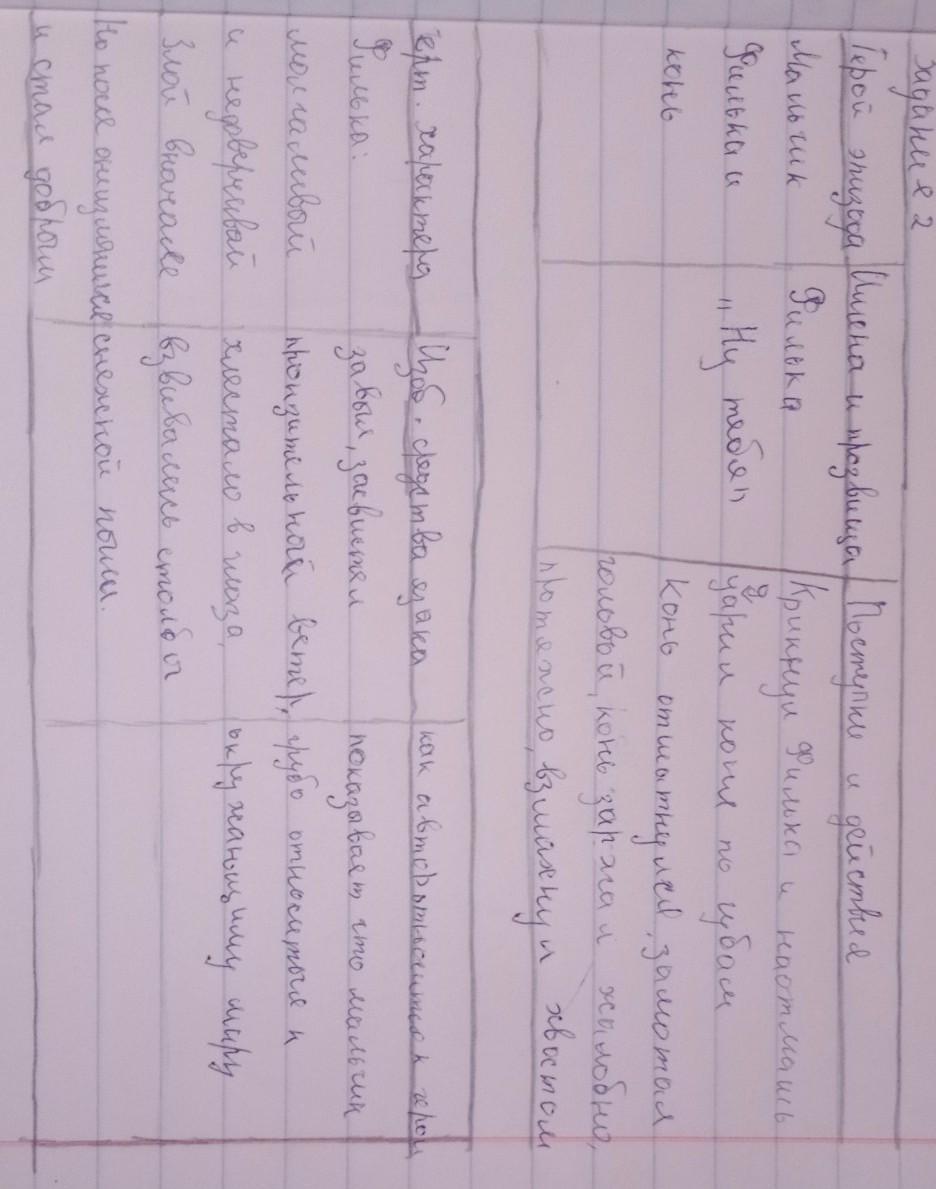 Задание 2
Герой эпизода Имена и прозвища Поступки и действия
Мальчик Филька Крикнул Филька и наотмашь
Филька и „Ну тебя" ударил коня по губам
конь Конь отшатнулся, замотал
головой, конь заржал жалобно,
протяжно, взмахнул хвостом
Черт. характера Изоб. средства языка как автор относится к герою
Филька: завыл, засвистел показывает что мальчик
молчаливый пронзительный ветер, грубо относиться к
и недоверчивай хлестало в глаза, окружающиму миру
Злой вначале взвивались столбы
Но поже он изменился снежной пыли.
и стал добрым